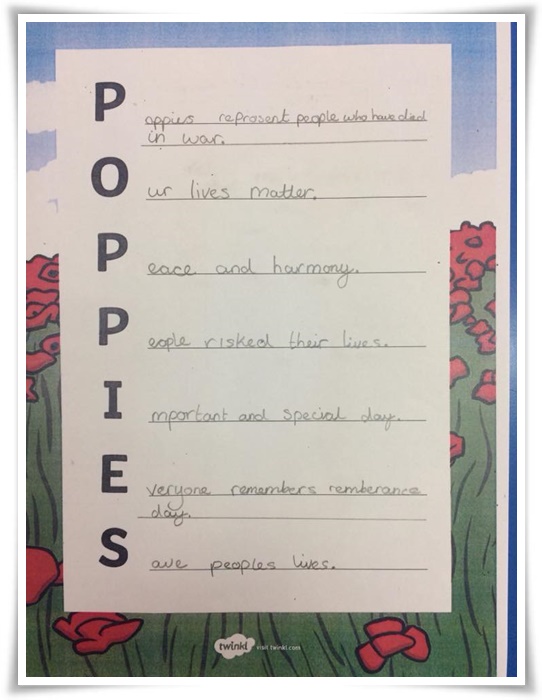 Poppies represent people who have died
in war.
Our lives matter.
Peace and harmony.
People risked their lives.
Important and special day.
Everyone remembers remberance
day.
Save peoples lives.
twinkl visit twinkl.com